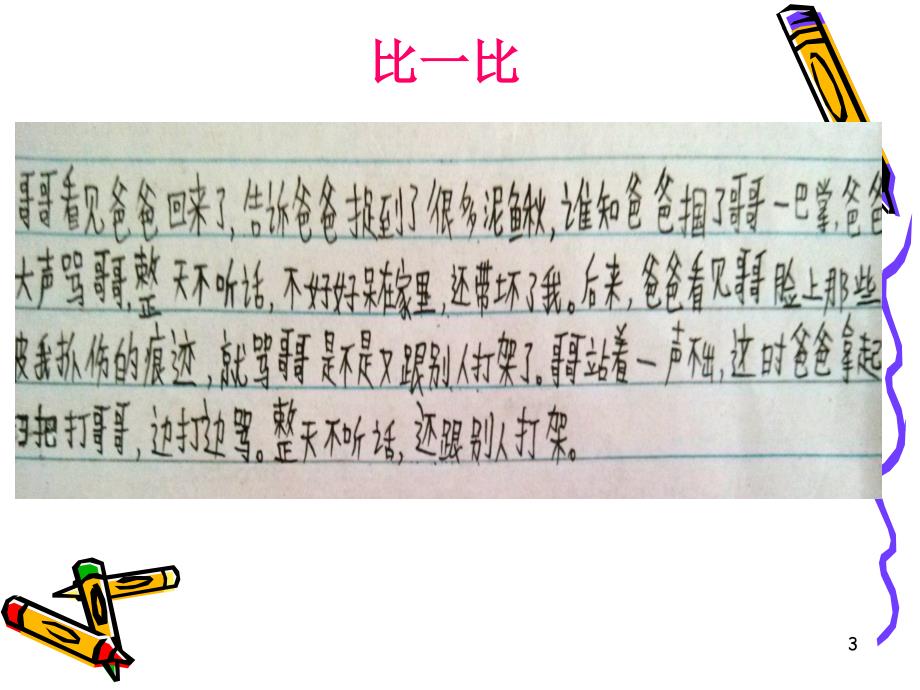 比一比
哥哥看见爸爸回来了,告诉爸爸捉到了很多泥鳅,谁知爸爸掴了哥哥一巴掌,爸爸
大声骂哥哥,整天不听话,不好好呆在家里,还带坏了我。后来,爸爸看见哥哥脸上那些
被我抓伤的痕迹,就骂哥哥是不是又跟别人打架了。哥哥站着一声不出,这时爸爸拿起
扫把打哥哥,边打边骂。整天不听话,还跟别人打架。
3